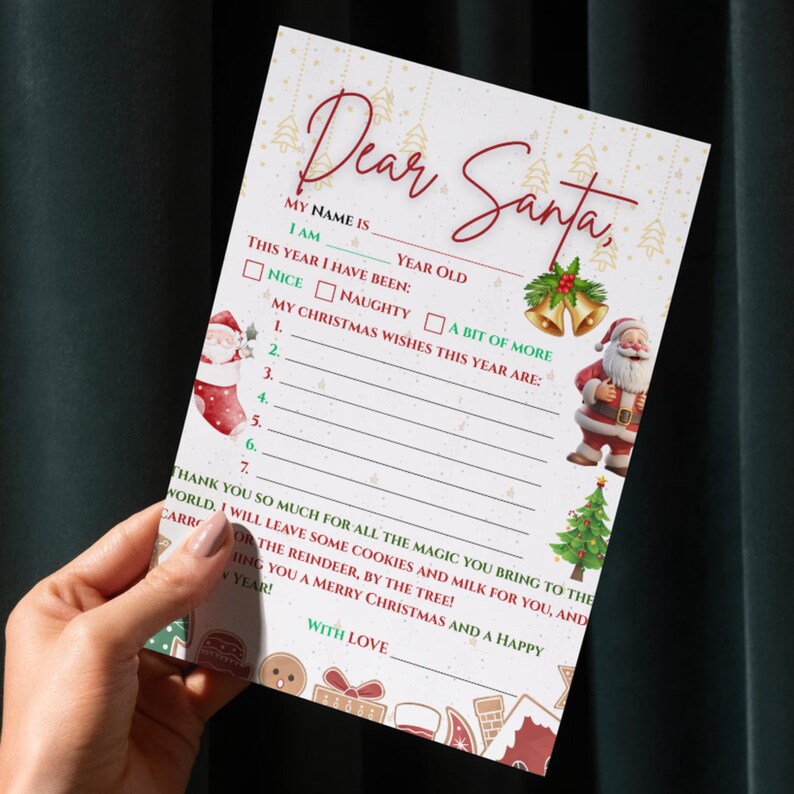 Dear Santa,
My Name is
I am Year Old
This year I have been:
Nice Naughty A bit of more
My christmas wishes this year are:
1.
2.
3.
4.
5.
6.
7.
Thank you so much for all the magic you bring to the
world. I will leave some cookies and milk for you, and
for the reindeer, by the tree!
you a Merry Christmas and a Happy
Year!
With love